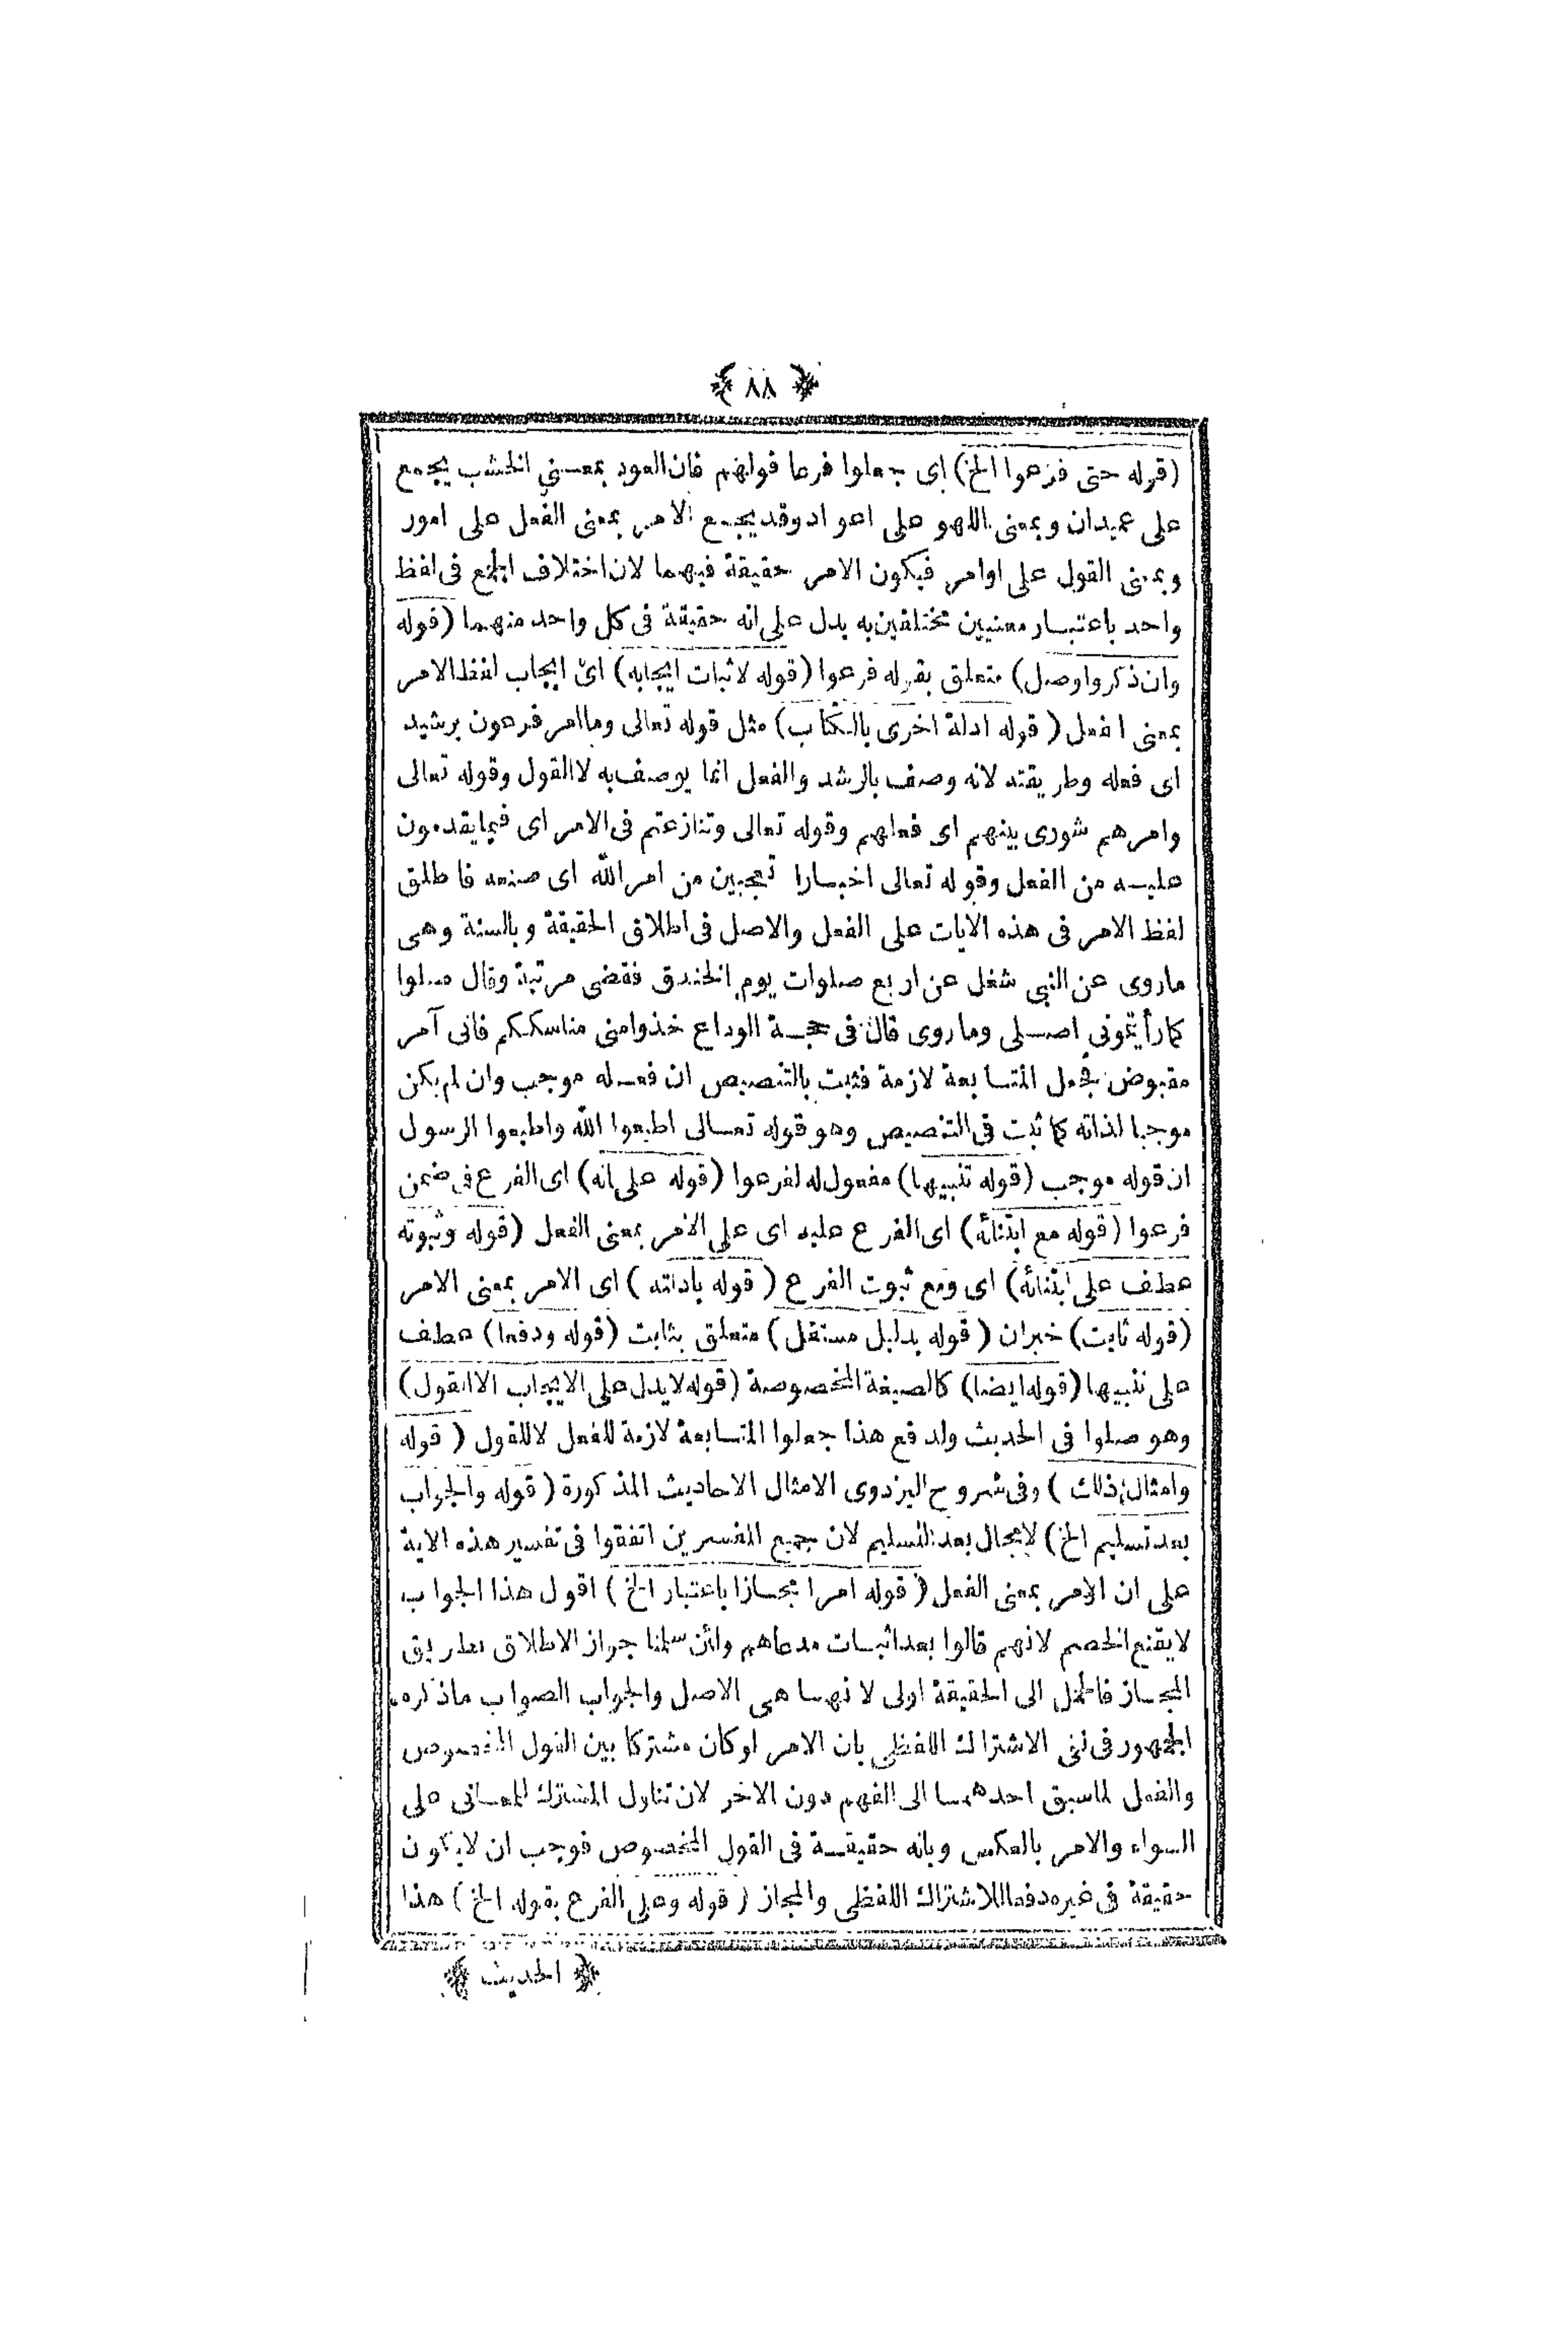 ﴿ ٨٨ ﴾
(قوله حتى فرعوا الخ) اى جعلوا فرعا قولهم فان العود بمعنى الخشب يجمع
على عيدان وبمعنى اللهو على اعواد وقد يجمع الامر بمعنى الفعل على امور
وبمعنى القول على اوامر فيكون الامر حقيقة فيهما لان اختلاف الجمع فى لفظ
واحد باعتبار معنيين مختلفين به يدل على انه حقيقة فى كل واحد منهما (قوله
وان ذكروا وصل) متعلق بقوله فرعوا (قوله لاثبات ايجابه) اى ايجاب لفظ الامر
بمعنى افعل (قوله ادلة اخرى بالكتاب) مثل قوله تعالى وما امر فرعون برشيد
اى فعله وطريقته لانه وصف بالرشد والفعل انما يوصف به لا القول وقوله تعالى
وامرهم شورى بينهم اى فعلهم وقوله تعالى وتنازعتم فى الامر اى فيما يقدمون
عليه من الفعل وقوله تعالى اخبارا تعجبين من امر الله اى صنعه فاطلق
لفظ الامر فى هذه الايات على الفعل والاصل فى اطلاق الحقيقة وبالسنة وهى
ماروى عن النبى شغل عن اربع صلوات يوم الخندق فقضى مرتبة وقال صلوا
كما رأيتمونى اصلى وماروى قال فى حجة الوداع خذوا منى مناسككم فانى آمر
مقبوض فجعل المتابعة لازمة فثبت بالتنصيص ان فعله موجب وان لم يكن
موجبا لذاته كما ثبت فى التنصيص وهو قوله تعالى اطيعوا الله واطيعوا الرسول
ان قوله موجب (قوله تنبيها) مفعول له لفرعوا (قوله على انه) اى الفرع فى ضمن
فرعوا (قوله مع ابتنائه) اى الفرع عليه اى على الامر بمعنى الفعل (قوله وثبوته
عطف على ابتنائه) اى ومع ثبوت الفرع (قوله بادلته) اى الامر بمعنى الامر
(قوله ثابت) خبران (قوله بدليل مستقل) متعلق بثابت (قوله ودفعا) عطف
على تنبيها (قوله ايضا) كالصيغة المخصوصة (قوله لا يدل على الايجاب الا القول)
وهو صلوا فى الحديث ولدفع هذا جعلوا المتابعة لازمة للفعل لا للقول (قوله
وامثال ذلك) وفى شروح البزدوى الامثال الاحاديث المذكورة (قوله والجواب
بعد تسليم الخ) لامجال بعد التسليم لان جميع المفسرين اتفقوا فى تفسير هذه الاية
على ان الامر بمعنى الفعل (قوله امرا مجازا باعتبار الخ) اقول هذا الجواب
لا يقنع الخصم لانهم قالوا بعد اثبات مدعاهم ولئن سلمنا جواز الاطلاق بطريق
المجاز فالحمل الى الحقيقة اولى لانها هى الاصل والجواب الصواب ماذكره
الجمهور فى نفى الاشتراك اللفظى بان الامر لو كان مشتركا بين القول المخصوص
والفعل لما سبق احدهما الى الفهم دون الاخر لان تناول المشترك للمعانى على
السواء والامر بالعكس وبانه حقيقة فى القول المخصوص فوجب ان لايكون
حقيقة فى غيره دفعا للاشتراك اللفظى والمجاز (قوله وعلى الفرع بقوله الخ) هذا
﴿ الحديث ﴾